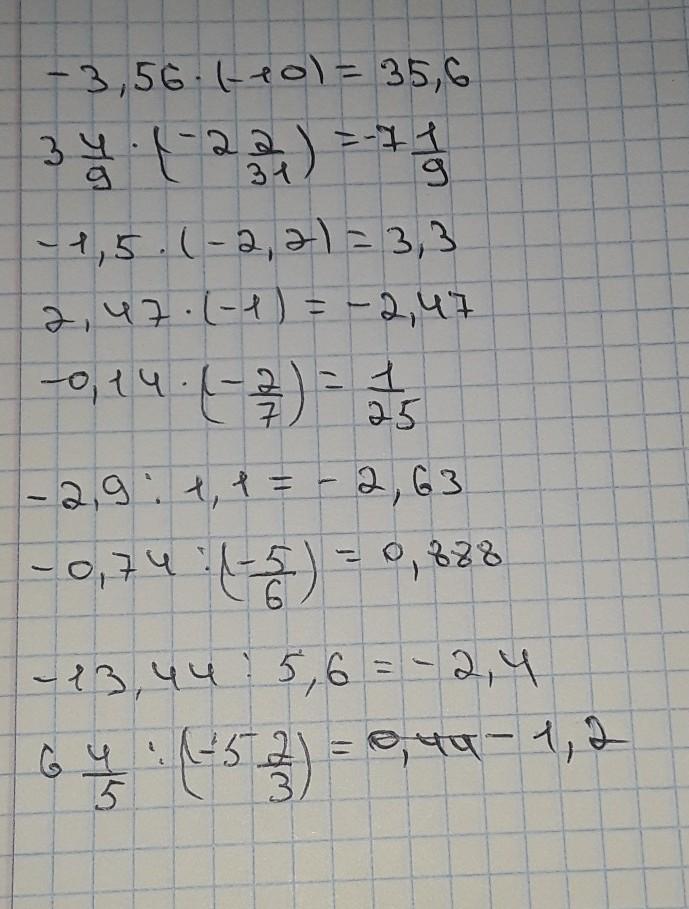 -3,56·(-10) = 35,6
3 4/9 · (-2 2/31) = -7 1/9
-1,5·(-2,2) = 3,3
2,47·(-1) = -2,47
-0,14·(-2/7) = 1/25
-2,9 : 1,1 = -2,63
-0,74 : (-5/6) = 0,888
-13,44 : 5,6 = -2,4
6 4/5 : (-5 2/3) = 0,44 - 1,2